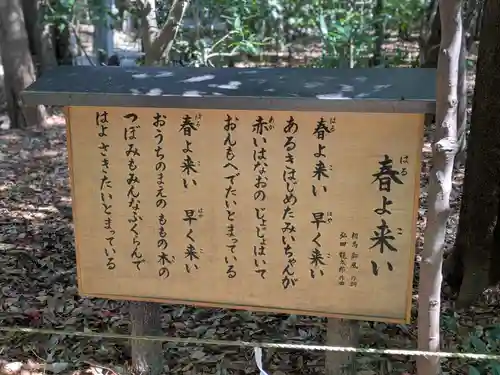 春よ来い
はる
こ
相馬 御風 作詞
弘田 龍太郎 作曲
春よ来い 早く来い
はる こ はや こ
あるきはじめたみいちゃんが
赤いはなおの じょじょはいて
あか
おんもへでたいとまっている
春よ来い 早く来い
はる こ はや こ
おうちのまえの ももの木の
き
つぼみもみんなふくらんで
はよ さきたいとまっている